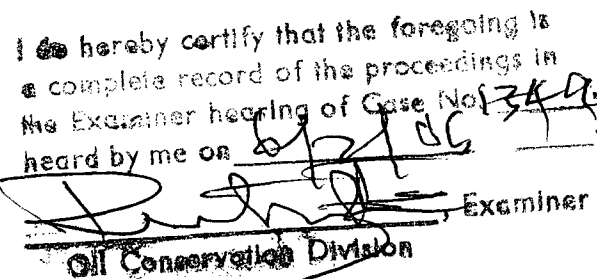 I do hereby certify that the foregoing is
a complete record of the proceedings in
the Examiner hearing of Case No.
heard by me on
, Examiner
Oil Conservation Division